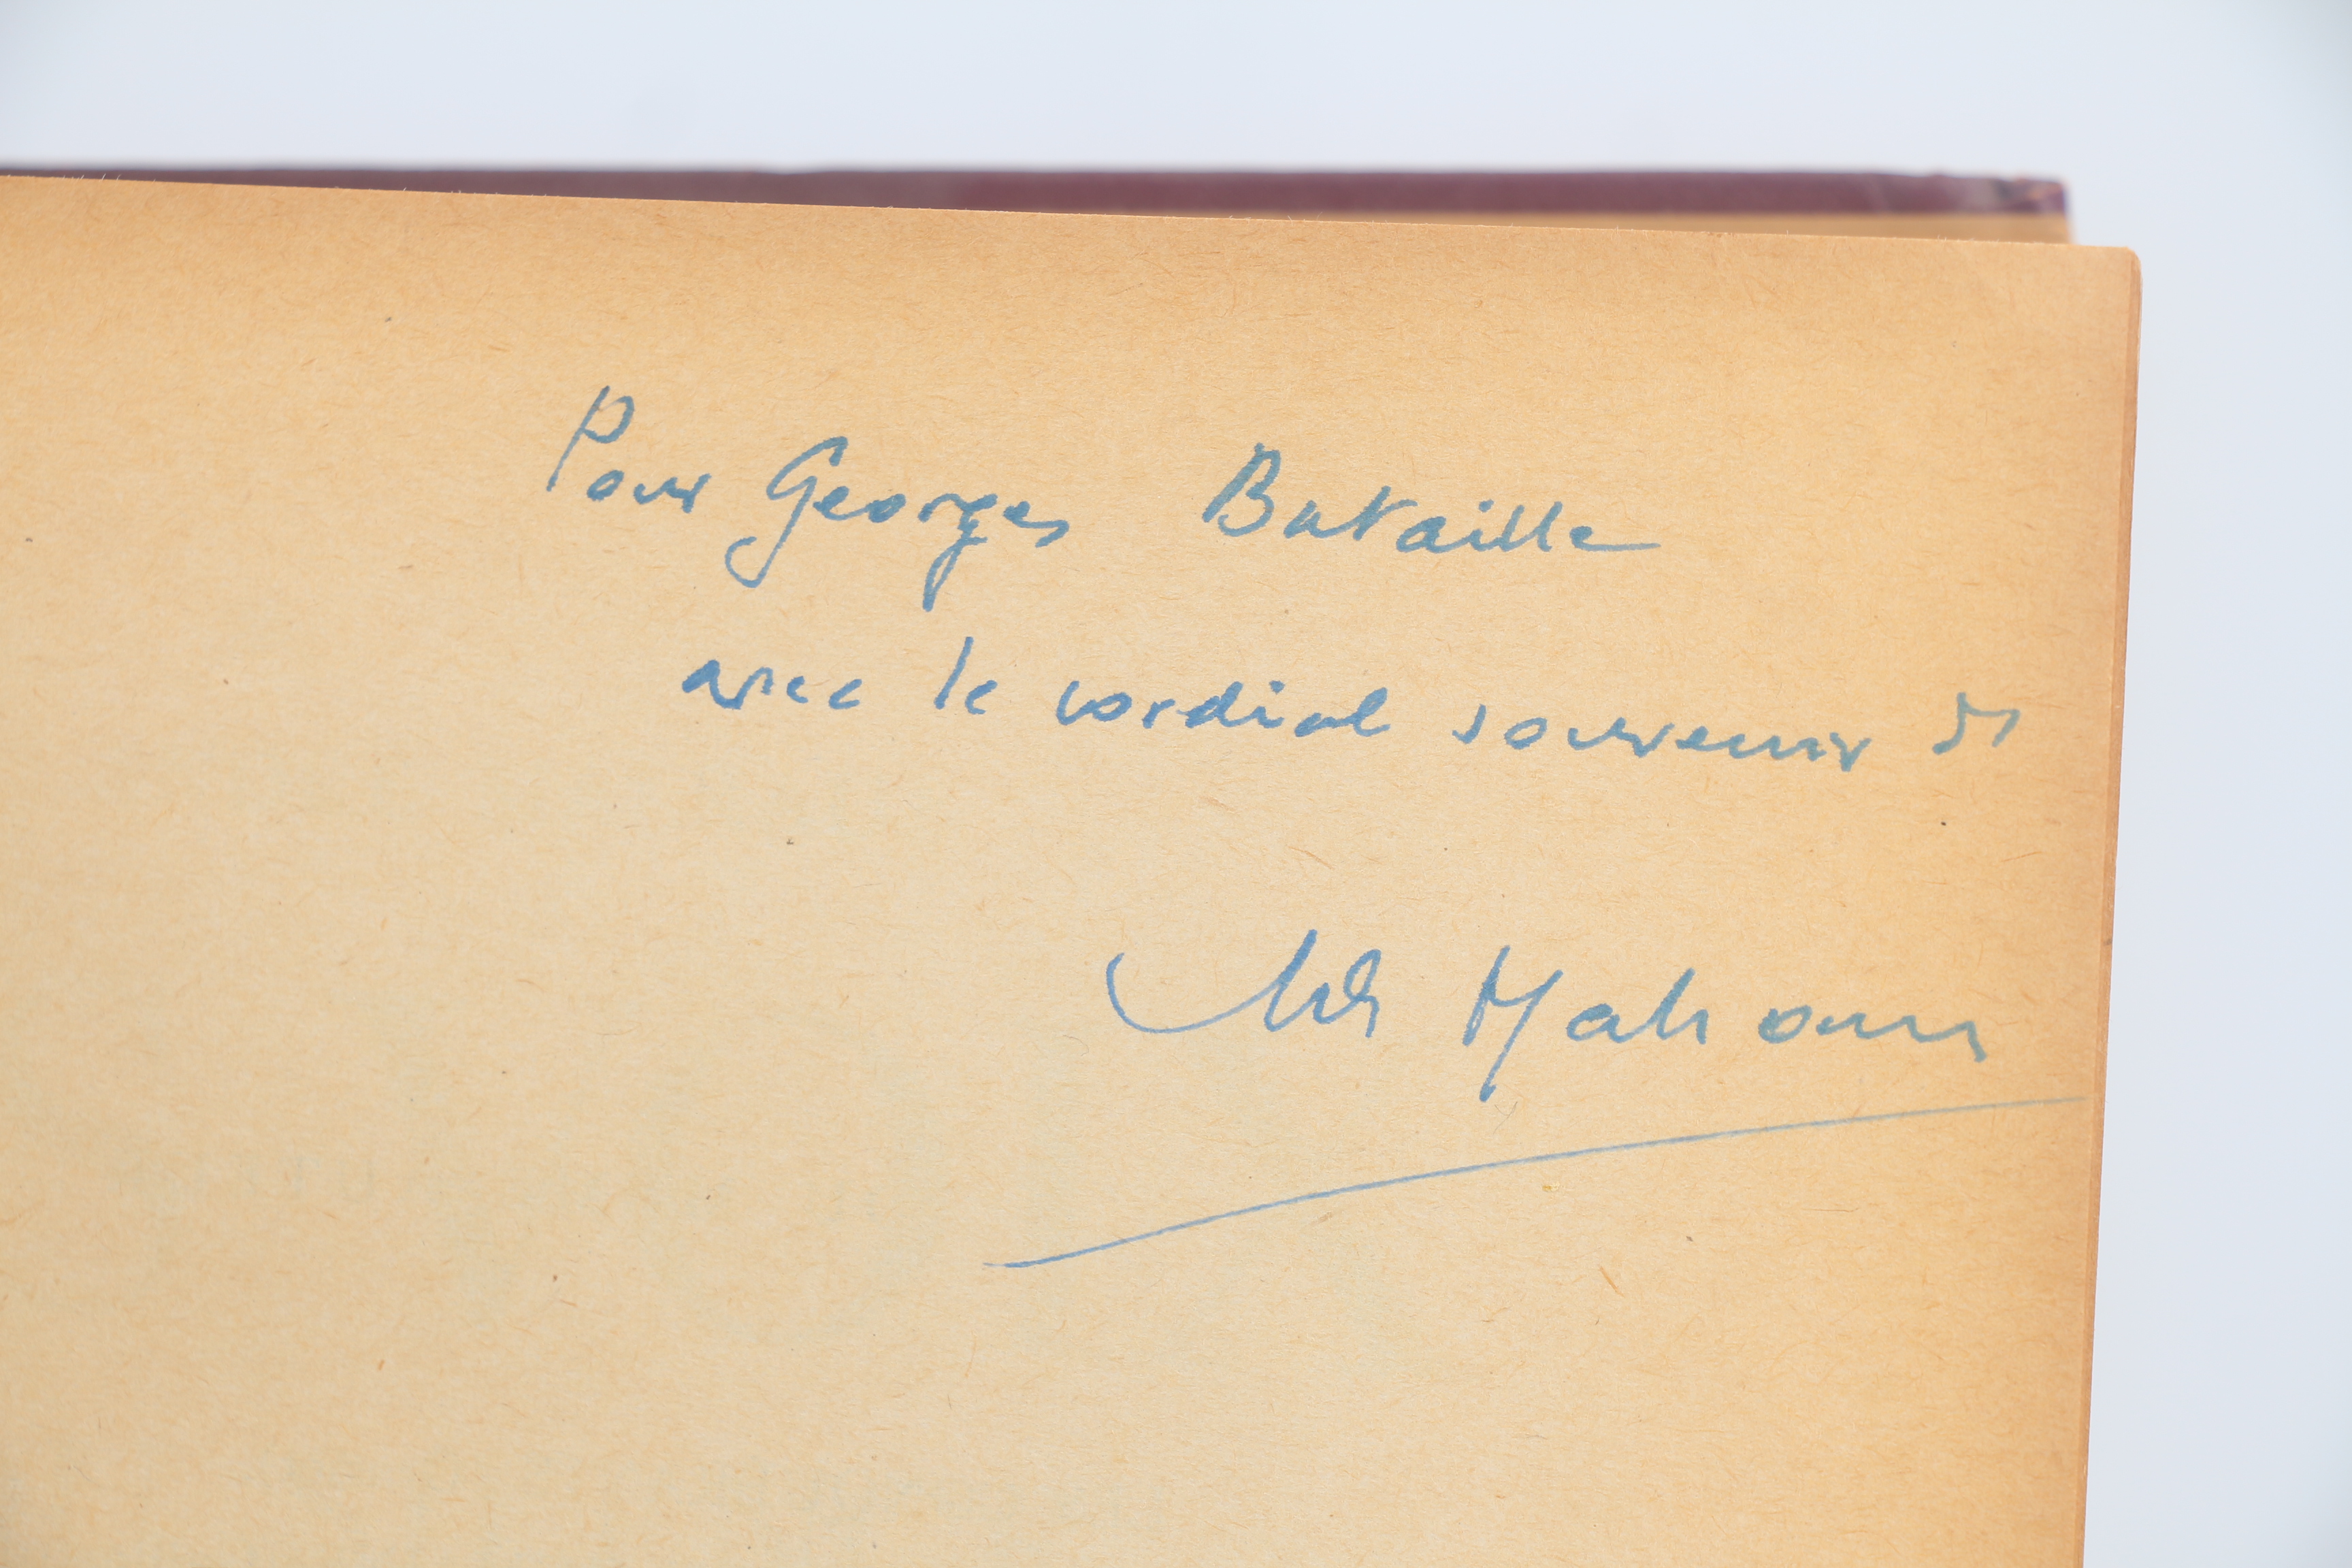 Pour Georges Bataille
avec le cordial souvenir de
André Malraux